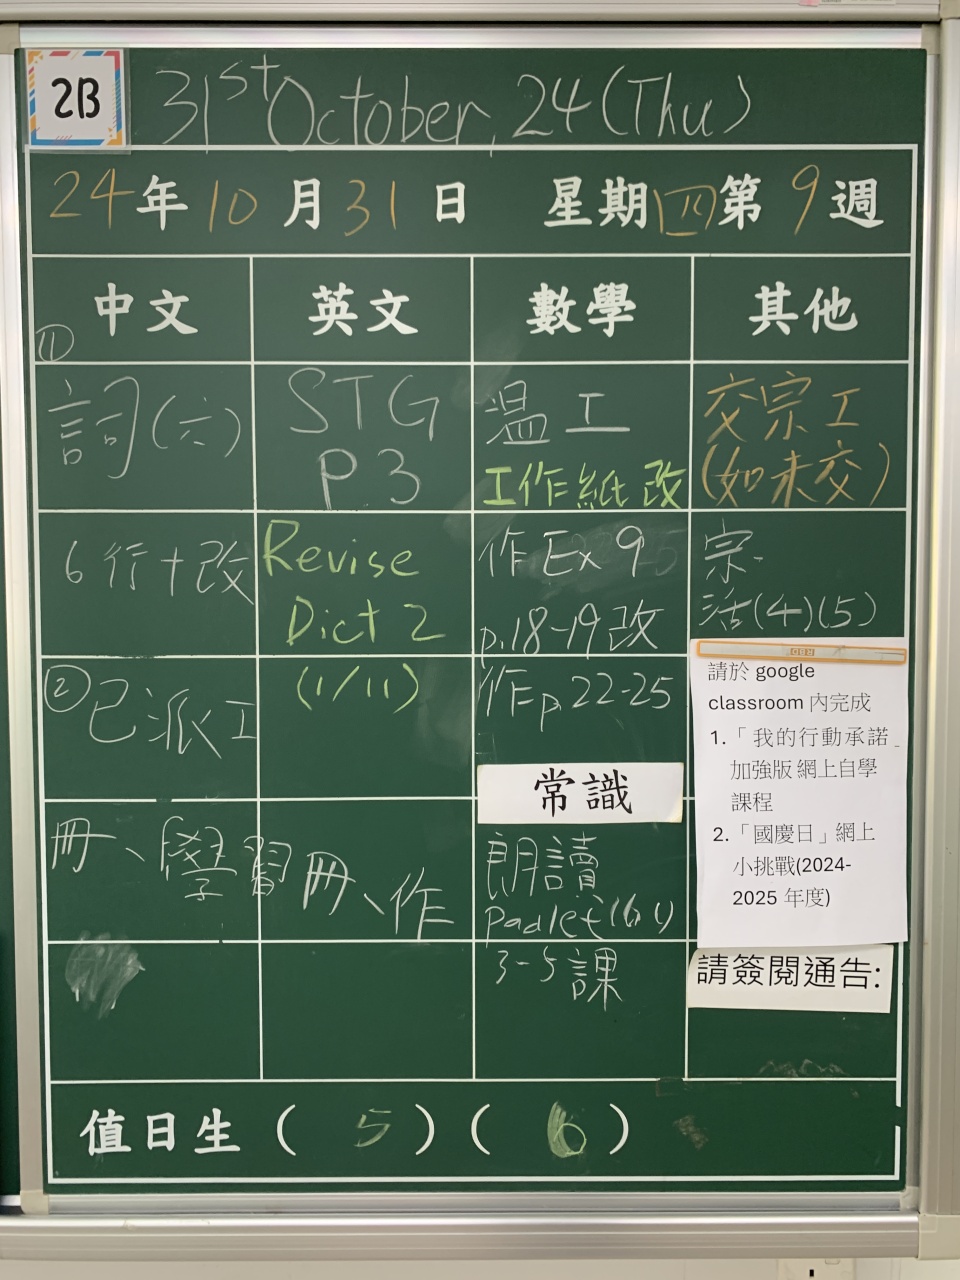 2B
31st October, 24 (Thu)
24年10月31日 星期四第9週
中文
英文
數學
其他
①
詞(六)
6行+改
②已派工
冊、學習
STG
P.3
Revise
Dict 2
(1/11)
冊、作
溫工
工作紙改
作Ex 9
p.18-19改
作p.22-25
常識
朗讀
padlet
3-5課
交宗工
(如未交)
宗-
活(4)(5)
請於 google
classroom 內完成
1.「我的行動承諾
加強版 網上自學
課程
2.「國慶日」網上
小挑戰(2024-
2025 年度)
請簽閱通告:
值日生 ( 5 ) ( 6 )